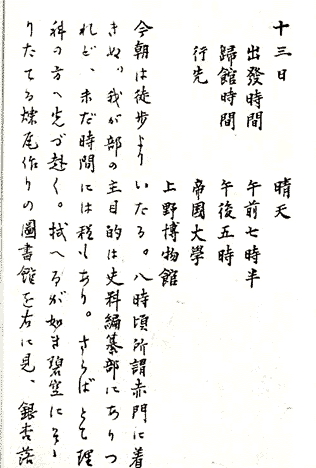 十三日　晴天
出發時間　午前七時半
歸館時間　午後五時
行先　帝國大學
上野博物館
今朝は徒歩よりいたる。八時頃所謂赤門に着
きぬ。我が部の主目的は史料編纂部にありつ
れど、未だ時間には程もあり。さらばとて理
科の方へ先づ赴く。拭へるが如き碧空にそゝ
りたてる煉瓦作りの圖書館を右に見、銀杏落